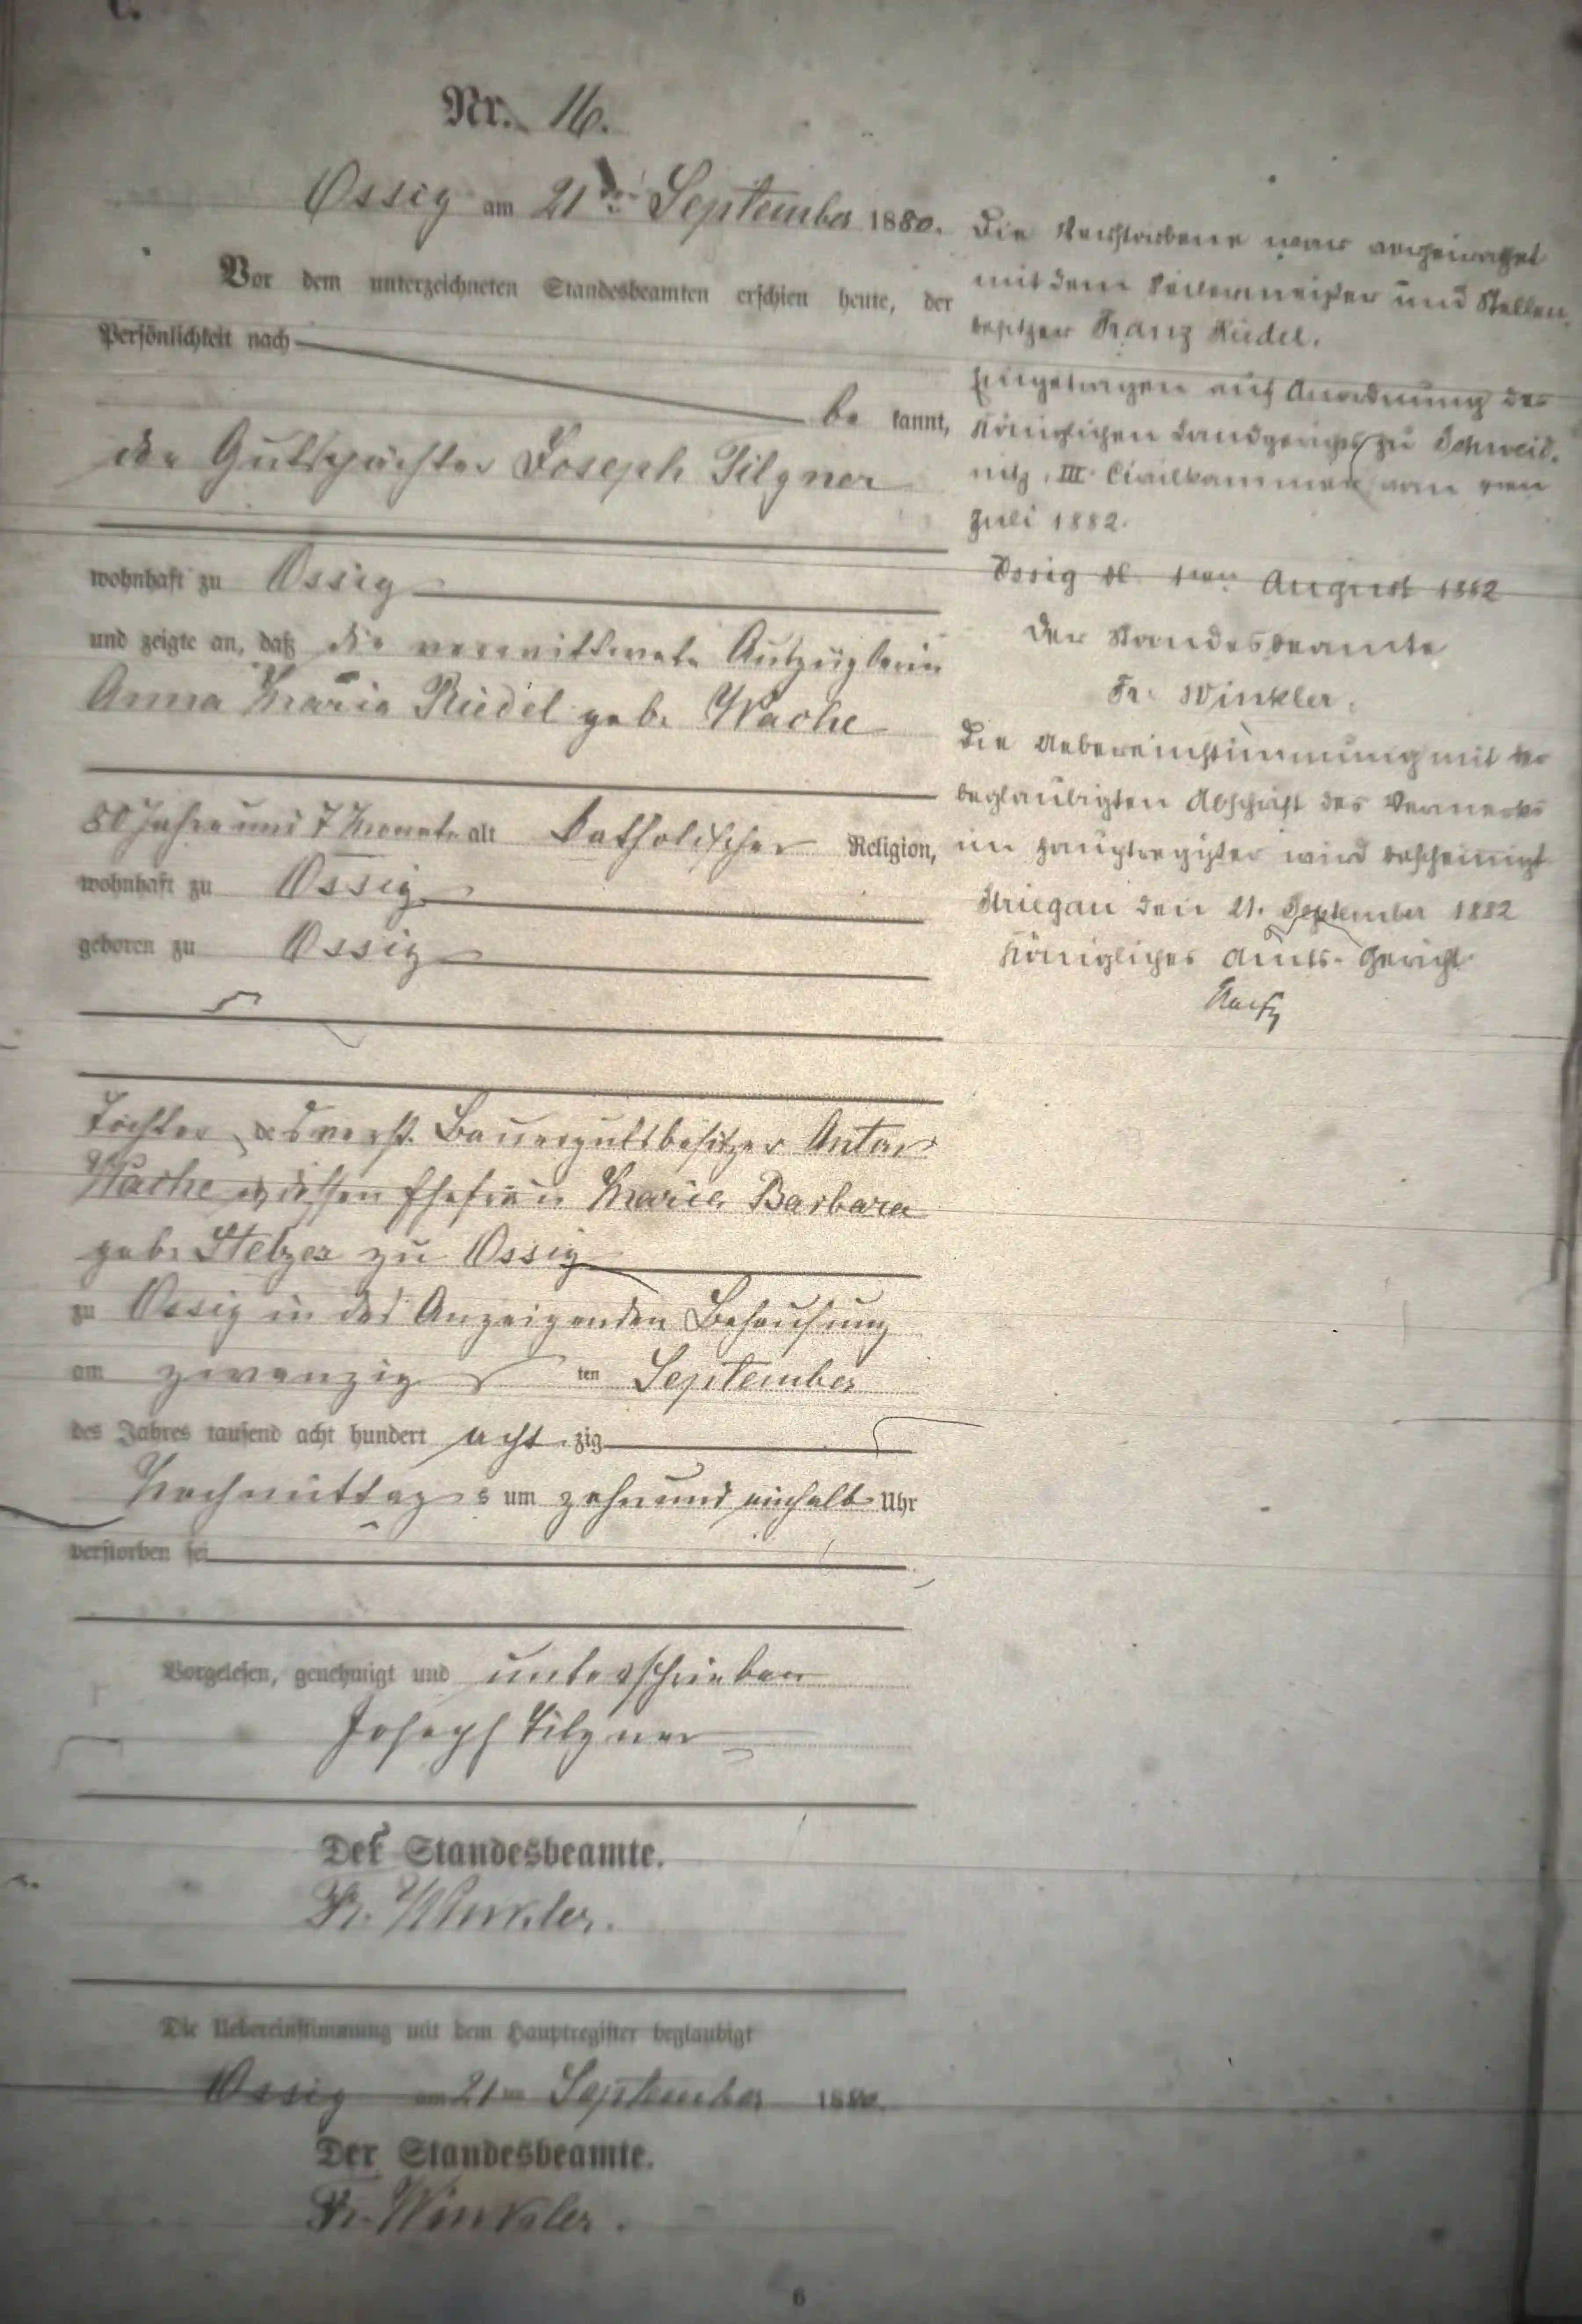 C.
Nr. 16.
Ossig am 21ten September 1880.
Vor dem unterzeichneten Standesbeamten erschien heute, der
Persönlichkeit nach
be kannt,
der Gutspächter Joseph Pilgner
wohnhaft zu Ossig
und zeigte an, daß die verwittwete Auszüglerin
Anna Maria Riedel geb. Wache
80 Jahre und 7 Monate alt katholischer Religion,
wohnhaft zu Ossig
geboren zu Ossig
Tochter des verst. Bauergutsbesitzer Anton
Wache u. dessen Ehefrau Maria Barbara
geb. Stelzer zu Ossig
zu Ossig in des Anzeigenden Behausung
am zwanzig ten September
des Jahres tausend acht hundert acht zig
Nachmittag s um zehn und einhalb Uhr
verstorben sei
Vorgelesen, genehmigt und unterschrieben
Joseph Pilgner
Der Standesbeamte.
Fr. Winkler.
Die Uebereinstimmung mit dem Hauptregister beglaubigt
Ossig am 21ten September 1880.
Der Standesbeamte.
Fr. Winkler.
Die Verstorbene war verheirathet
mit dem und Stellen
besitzer Franz Riedel.
Eingetragen auf Anordnung des
Königlichen Landgerichts zu Schweid-
nitz, III. Civilkammer vom
Juli 1882.
Ossig d. August 1882
Der Standesbeamte
Fr. Winkler.
Die Uebereinstimmung mit der
beglaubigten Abschrift des Vermerks
im Hauptregister wird bescheinigt
Striegau den 21. September 1882
Königliches Amts-Gericht
6